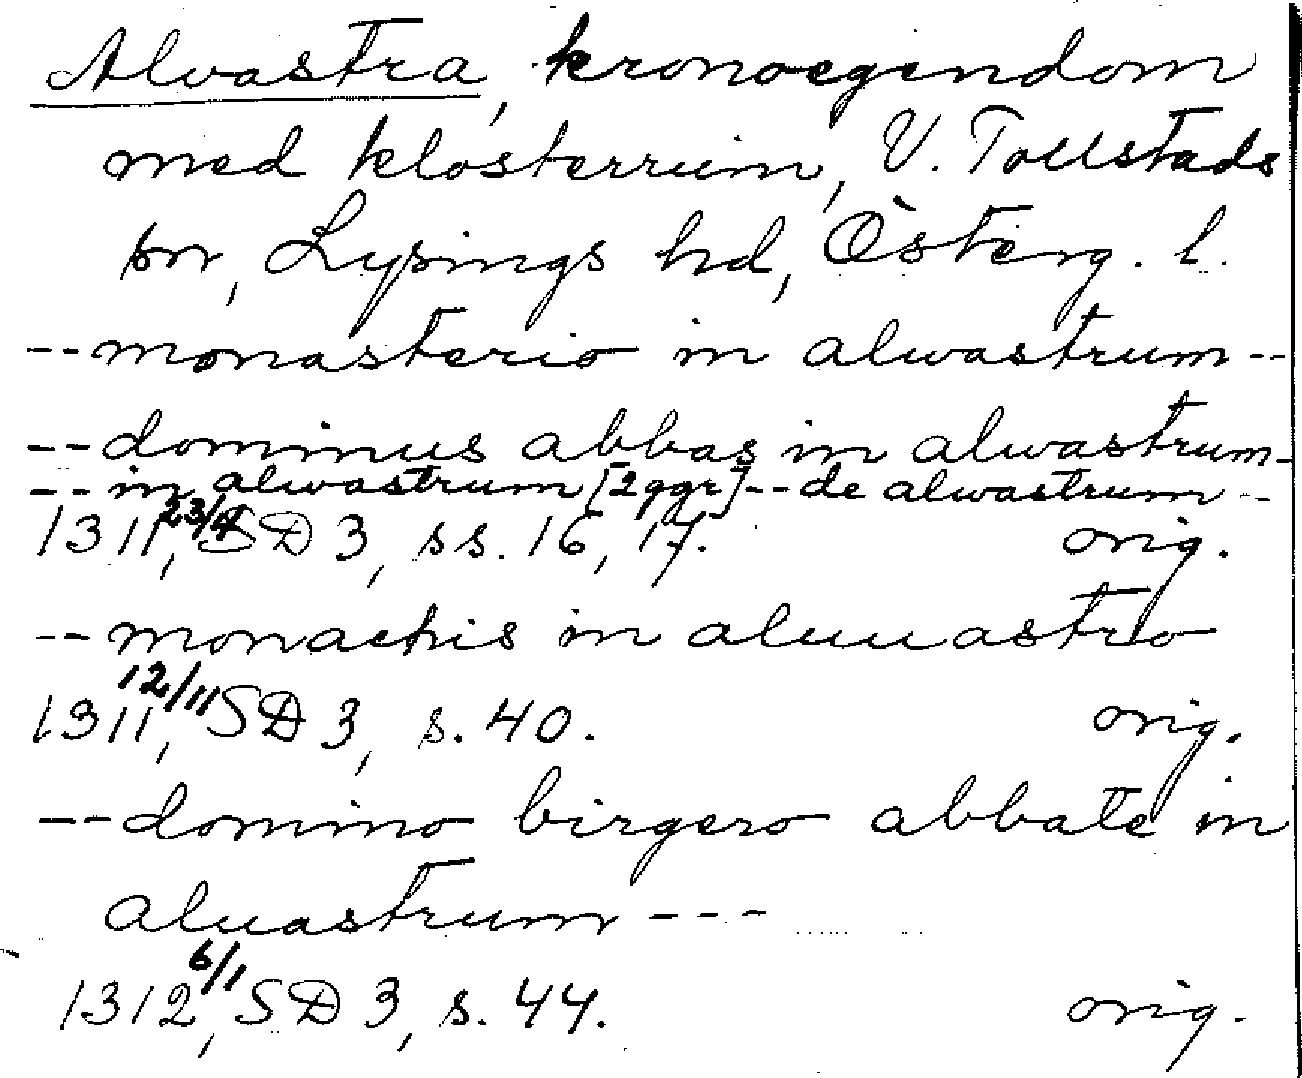 Alvastra, kronoegendom
med klosterruin, V. Tollstads
sn, Lysings hd, Österg. l.
--monasterio in alwastrum--
--dominus abbas in alwastrum-
--in alwastrum [2 ggr]--de alwastrum--
1311 23/4, SD 3, ss. 16, 17. orig.
--monachis in aluuastro
1311 12/11, SD 3, s. 40. orig.
--domino birgero abbate in
aluastrum---
1312 6/1, SD 3, s. 44. orig.